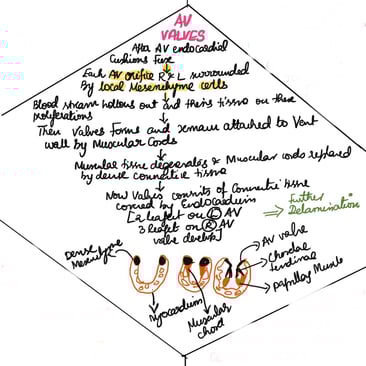 AV
VALVES
After AV endocardial
Cushions Fuse
Each AV orifice R & L surrounded
By local Mesenchyme cells
Blood stream hollows out and thins tissue on these
proliferations
Then Valves Forms and remain attached to Vent
wall by Muscular Cords
Muscular tissue degenerates & Muscular cords replaced
by dense connective tissue
Now Valves consists of Connective tissue
covered by Endocardium
2 leaflet on L AV
3 leaflet on R AV
valve develop
⇒ Further
Delamination*
Dense
Mesenchyme
AV valve
Chordae
tendinae
Papillary Muscle
Myocardium
Muscular
chord